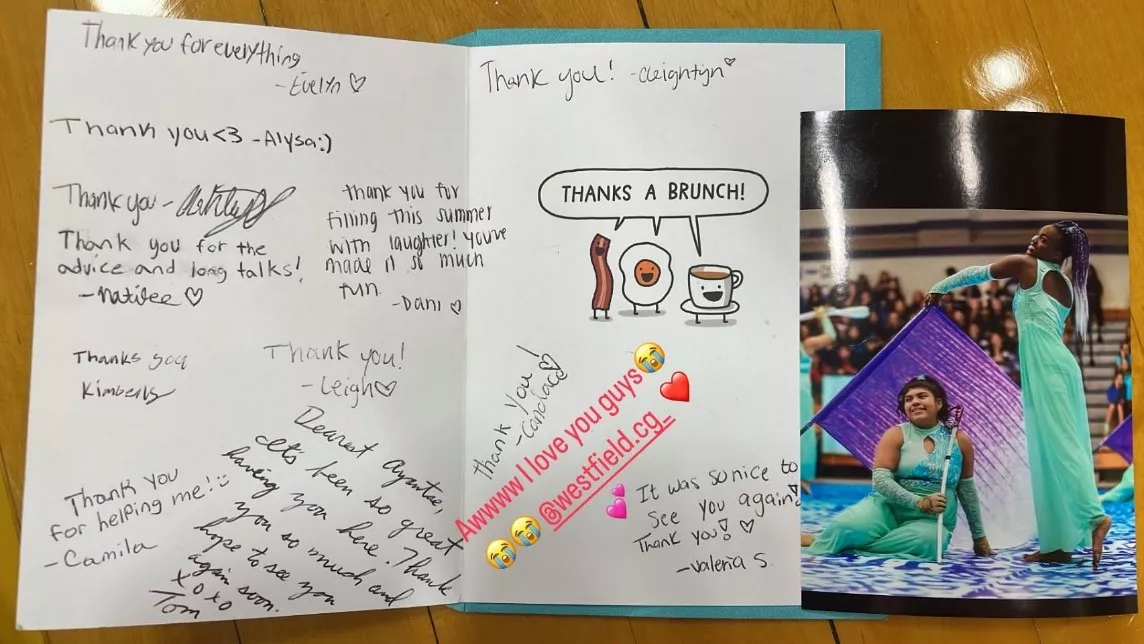 Thank you for everything
-Evelyn ♡
Thank you<3 -Alysa:)
Thank you -
Thank you for the
advice and long talks!
-Natilee ♡
thank you for
filling this summer
with laughter! you've
made it so much
fun
-Dani ♡
Thanks
Kimberly
Thank you!
-Leigh♡
Thank you
for helping me!
-Camila
Dearest
It's been so great
having you here. Thank
you so much and
hope to see you
again soon.
xoxo
Tom
Thank you! -cleightyn
THANKS A BRUNCH!
thank you!
-Candace♡
Awww I love you guys😭❤️
😭😭@westfield.cg_
💕
It was so nice to
see you again!
Thank you! ♡
-Valeria S.